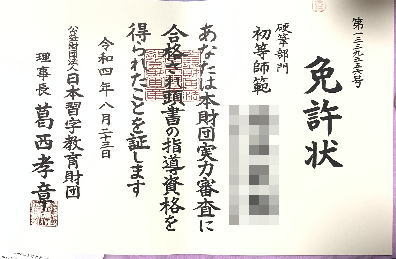 第一三三九五五六号
免許状
硬筆部門
初等師範
あなたは本財団実力審査に
合格され頭書の指導資格を
得られたことを証します
令和四年八月二十三日
公益財団法人日本習字教育財団
理事長 葛西孝章